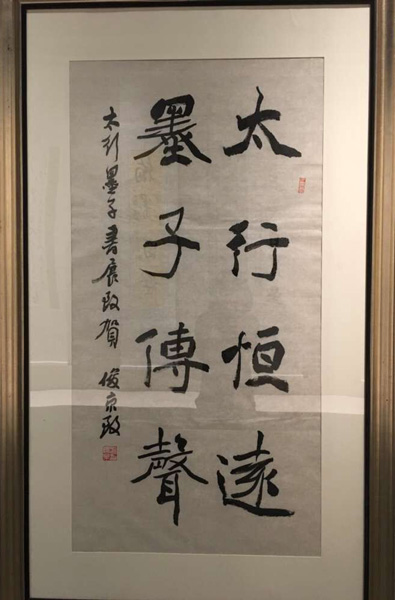 太行恒遠
墨子傳聲
太行墨子書展致賀 俊京敬